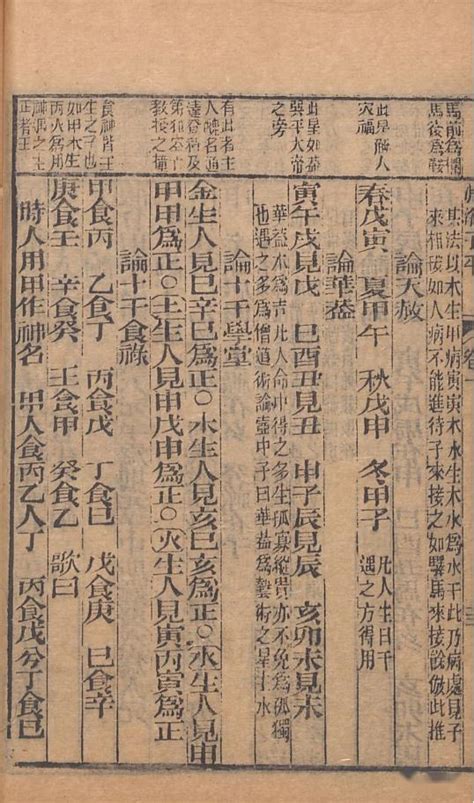 馬前為攔
馬後為鞍
其法以木生甲病寅寅木水生水為水干此乃病處見子
來相破如人病不能進待子來接之如驛馬來接說倣此推
論天赦
此是解人
災福
春戊寅 夏甲午 秋戊申 冬甲子 凡人生日干
遇之方得用
論華蓋
此星如蓋
與平大帝
之旁
寅午戌見戌 巳酉丑見丑 申子辰見辰 亥卯未見未
華蓋本為吉此人命中得之多生孤寡縱貴亦不免為孤獨
他遇之多為僧道術論壺中子曰華蓋為藝術之星壬水
論十干學堂
有此者主
人聰名通
達登科及
第
教授之
金生人見巳辛巳為正○木生人見亥巳亥為正○水生人見申
甲申為正○土生人見申戊申為正○火生人見寅丙寅為正
論十干食祿
食神皆王
生之子也
如甲木生
丙火為用
神
正者王
甲食丙 乙食丁 丙食戊 丁食巳 戊食庚 巳食辛
庚食壬 辛食癸 壬食甲 癸食乙 歌曰
時人用甲作神名 甲人食丙乙人丁 丙食戊兮丁食巳